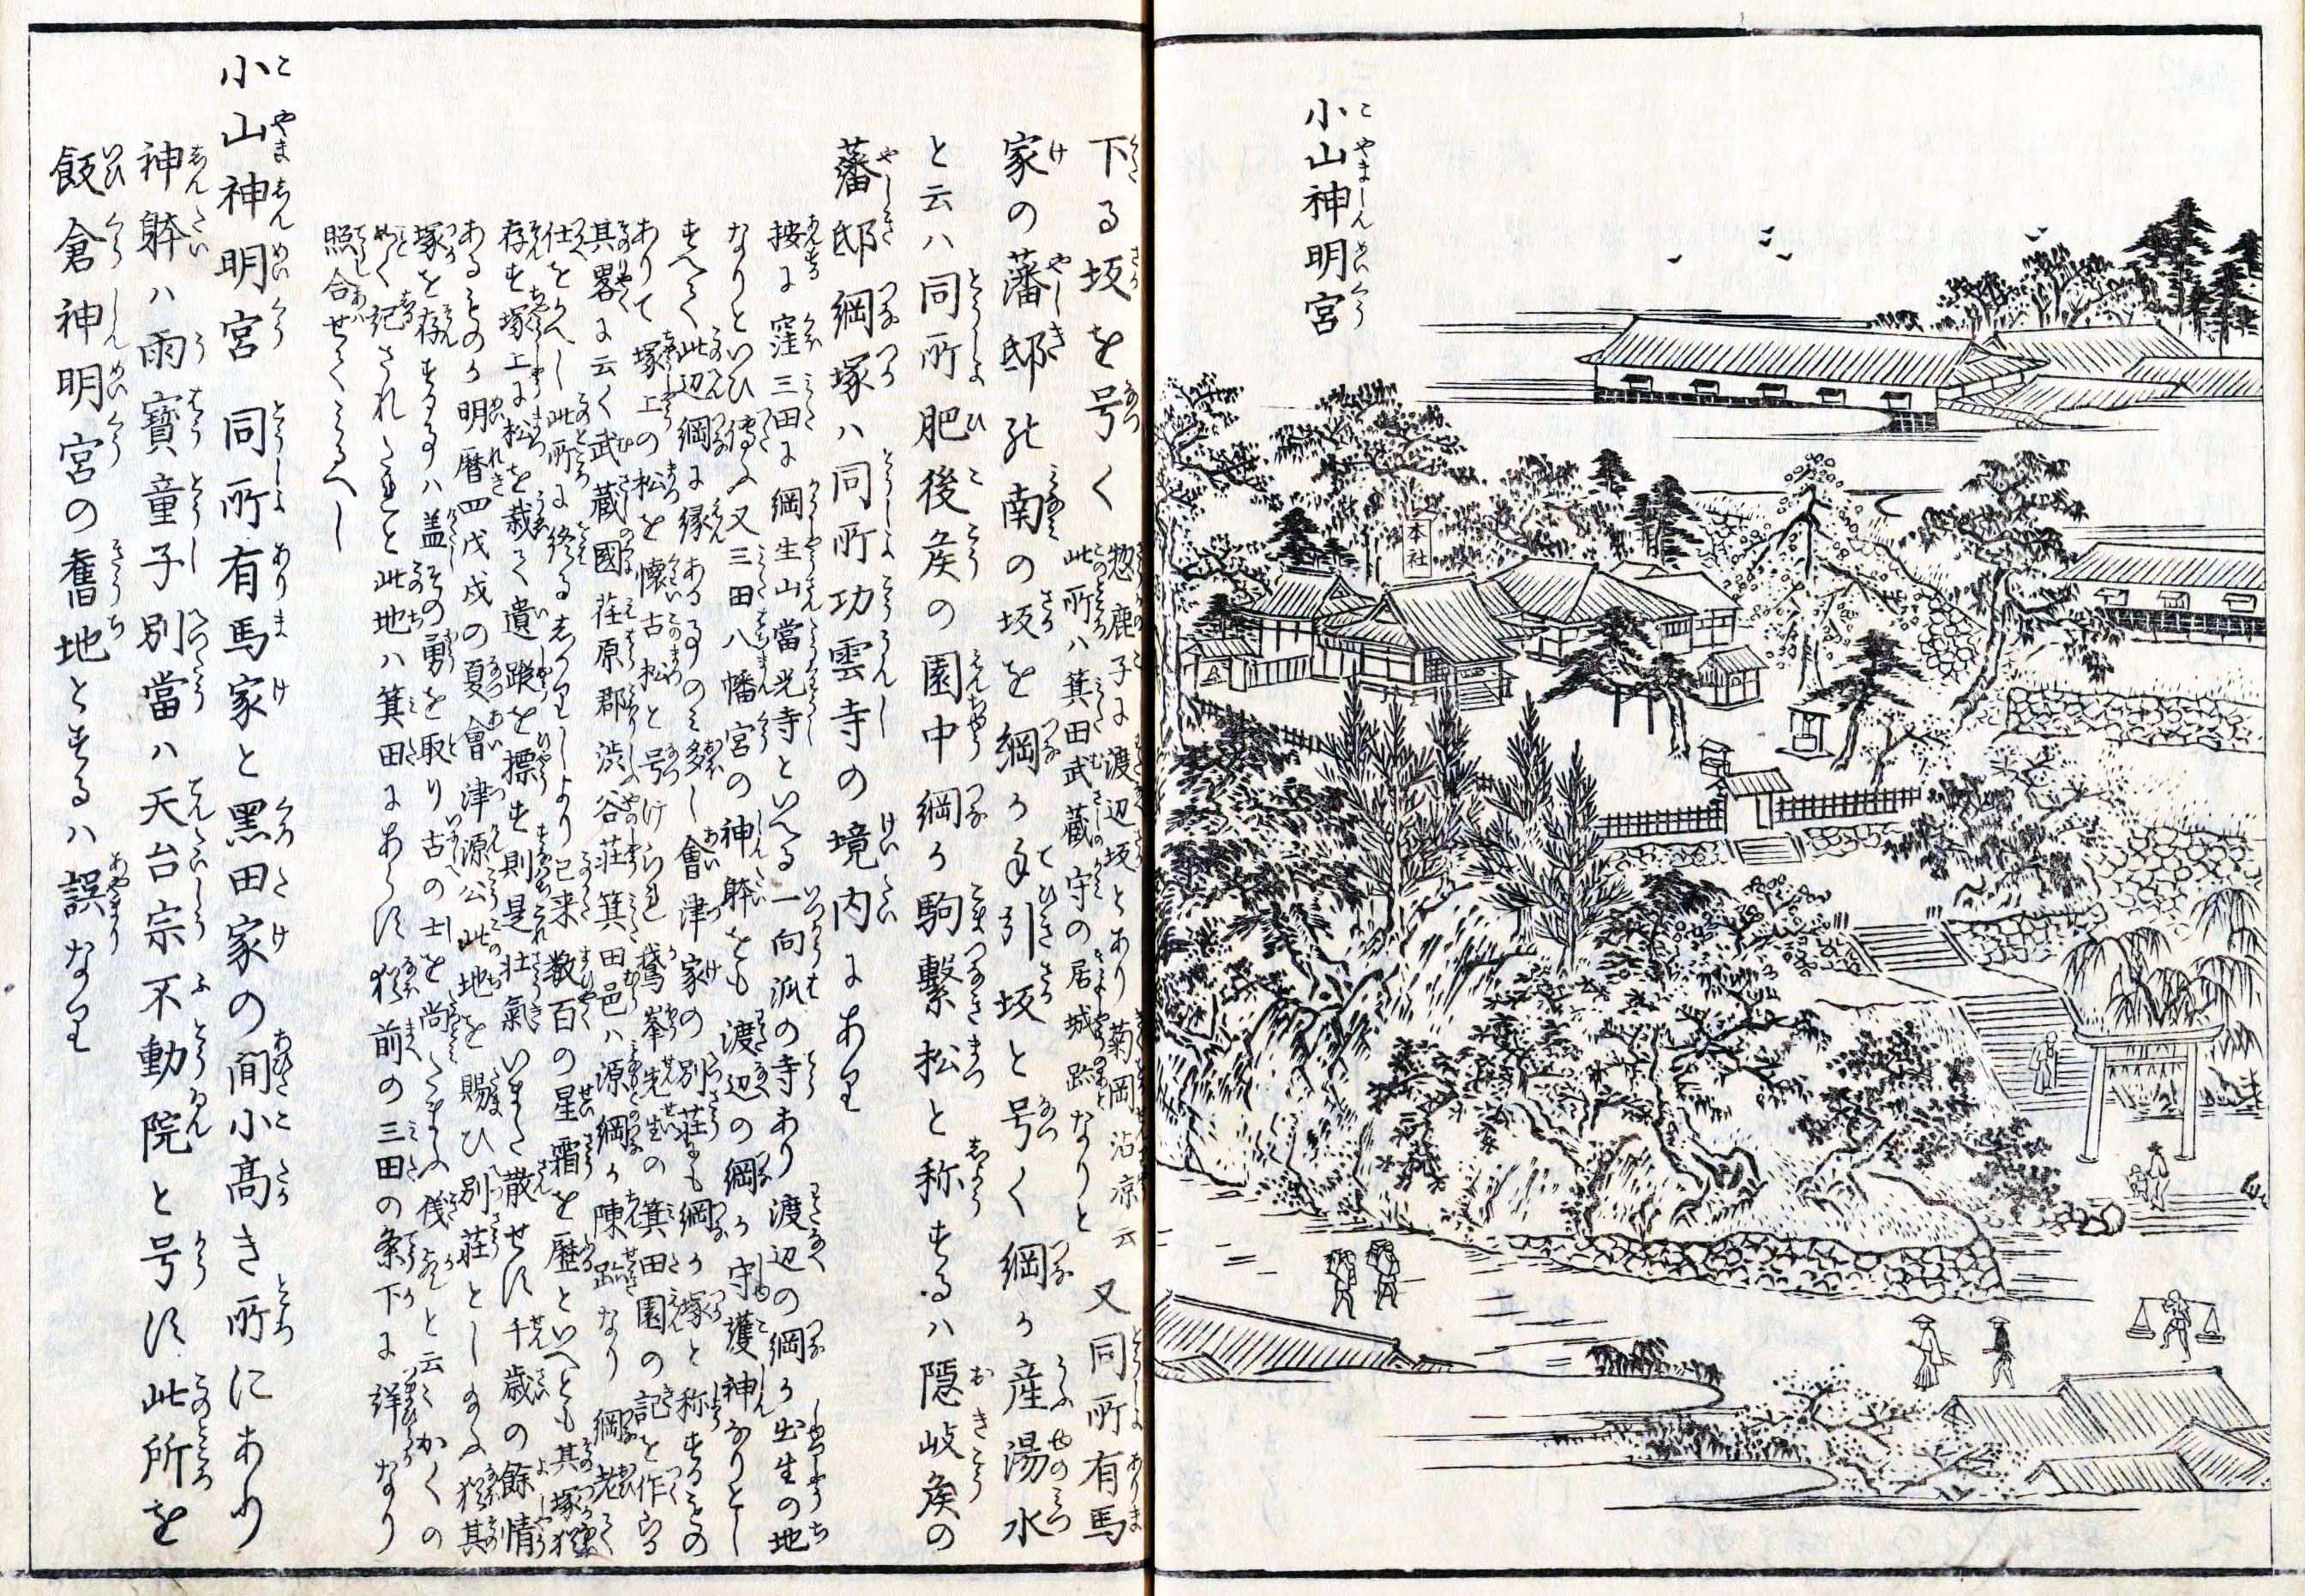 小山神明宮
こやましんめいぐう
本社
下る坂を号く
惣鹿子に渡辺坂とあり菊岡沾凉云
此所ハ箕田武蔵守の居城跡なりと
又同所有馬
家の藩邸の南の坂を綱か手引坂と号く綱か産湯水
と云ハ同所肥後矦の園中綱か駒繋松と称するハ隠岐矦の
藩邸綱塚ハ同所功雲寺の境内にあり
按に窪三田に綱生山當光寺といへる一向派の寺あり渡辺の綱か出生の地
なりといひ傳ふ又三田八幡宮の神躰をも渡辺の綱か守護神なりとし
すへて此辺綱に縁あるものミ多し會津家の別荘にも綱か塚と称するもの
ありて塚上の松を懐古松と号けられ鵞峯先生の箕田園の記を作らる
其畧に云く武蔵國荏原郡渋谷荘箕田邑ハ源綱か陳跡なり綱老て
仕をかへし此所に終る しより已来数百の星霜を歴といへとも其塚猶
存す塚上に松を栽て遺蹤を標す則是壮氣いまた散せす千歳の餘情
あるものか明暦四戊戌の夏會津源公此地を賜ひ別荘としたまふ猶其
塚を存するハ盖其勇を取り古の士を尚たまふ と云々かくの
ことく記されたれと此地ハ箕田にあらす猶前の三田の条下に詳なり
照合せてみるへし
小山神明宮 同所有馬家と黒田家の間小髙き所にあり
神躰ハ雨寳童子別當ハ天台宗不動院と号す此所を
飯倉神明宮の舊地とするハ誤なり